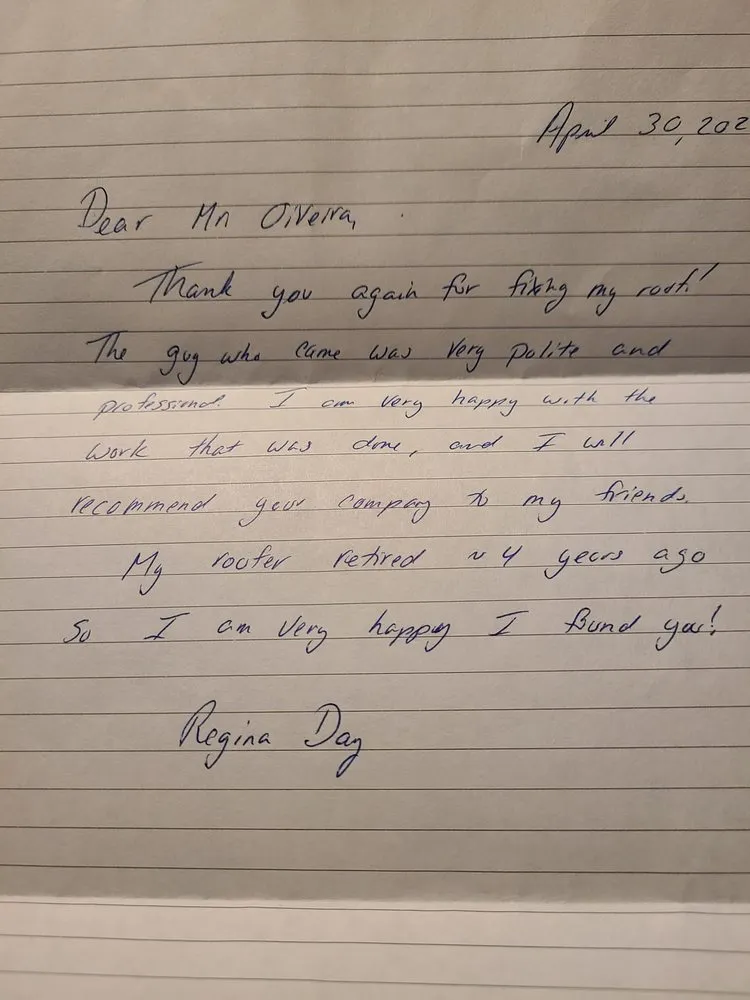 April 30, 202
Dear Mr Oiveira,
Thank you again for fixing my roof!
The guy who came was very polite and
professional. I am very happy with the
work that was done, and I will
recommend your company to my friends.
My roofer retired ~ 4 years ago
So I am very happy I found you!
Regina Day